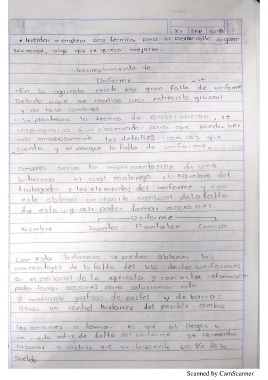 21 SEP 2018
• Inventar o emplear una técnica para el desarrollo organi-
zacional, algo que se quiera mejorar.
Incumplimiento de
Uniforme
• En la agrícola existe una gran falta de uniforme
Debido a que se realizo una entrevista grupal
y no todo
• Se planteará la técnica de observación, se
un observador para que pueda ver
los detalles con los que
cuenta y el porque la falta de uniforme.
sería la implementación de una
bitacora el cual contenga el Nombre del
trabajador y los elementos del uniforme y con
este obtener un reporte mensual de la falta
de este, y así poder tomar acciones.
Uniforme
Nombre Zapatos Pantalon Camisa
Con esta bitacora se pueden obtener los
porcentajes de la falta del uso de los uniformes
en el personal de la agrícola y con esta información
poder tomar acciones para solucionar esto
y mediante graficas de pastel y de barras
llevar un control historico del posible cambio
Las acciones a tomar es que al llegar a
un indice de falta del uniforme se
incluso que se descuente un % de su
sueldo
Scanned by CamScanner